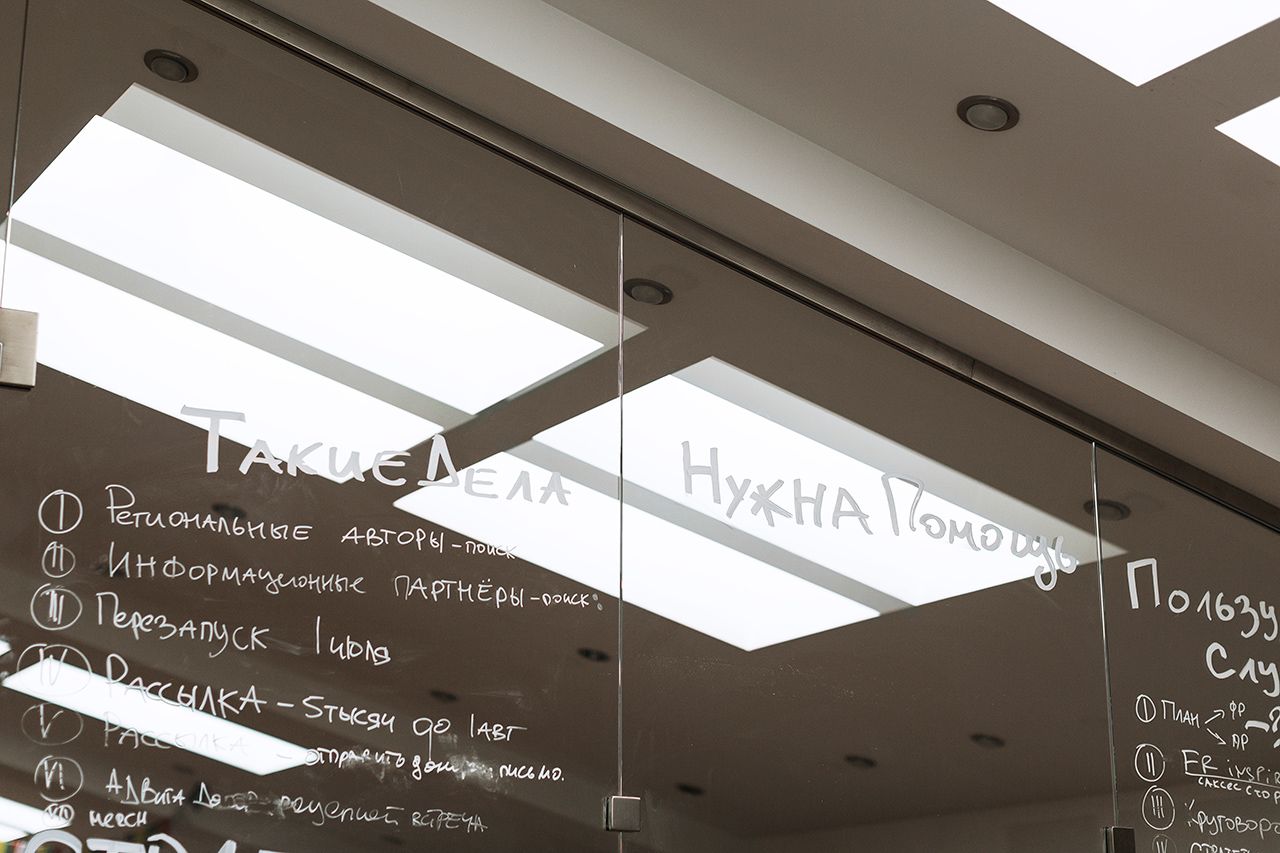 Такие Дела
I Региональные авторы – поиск
II Информационные партнёры – поиск
III Перезапуск 1 июля
IV Рассылка – 5 тысяч до 1 авг
V Рассылка – отправить письмо.
VI встреча
VII мерсн
Нужна Помощь
Пользу
Слу
I План ФР
ПР
II ER inspir
саксес стор
III круговор
IV